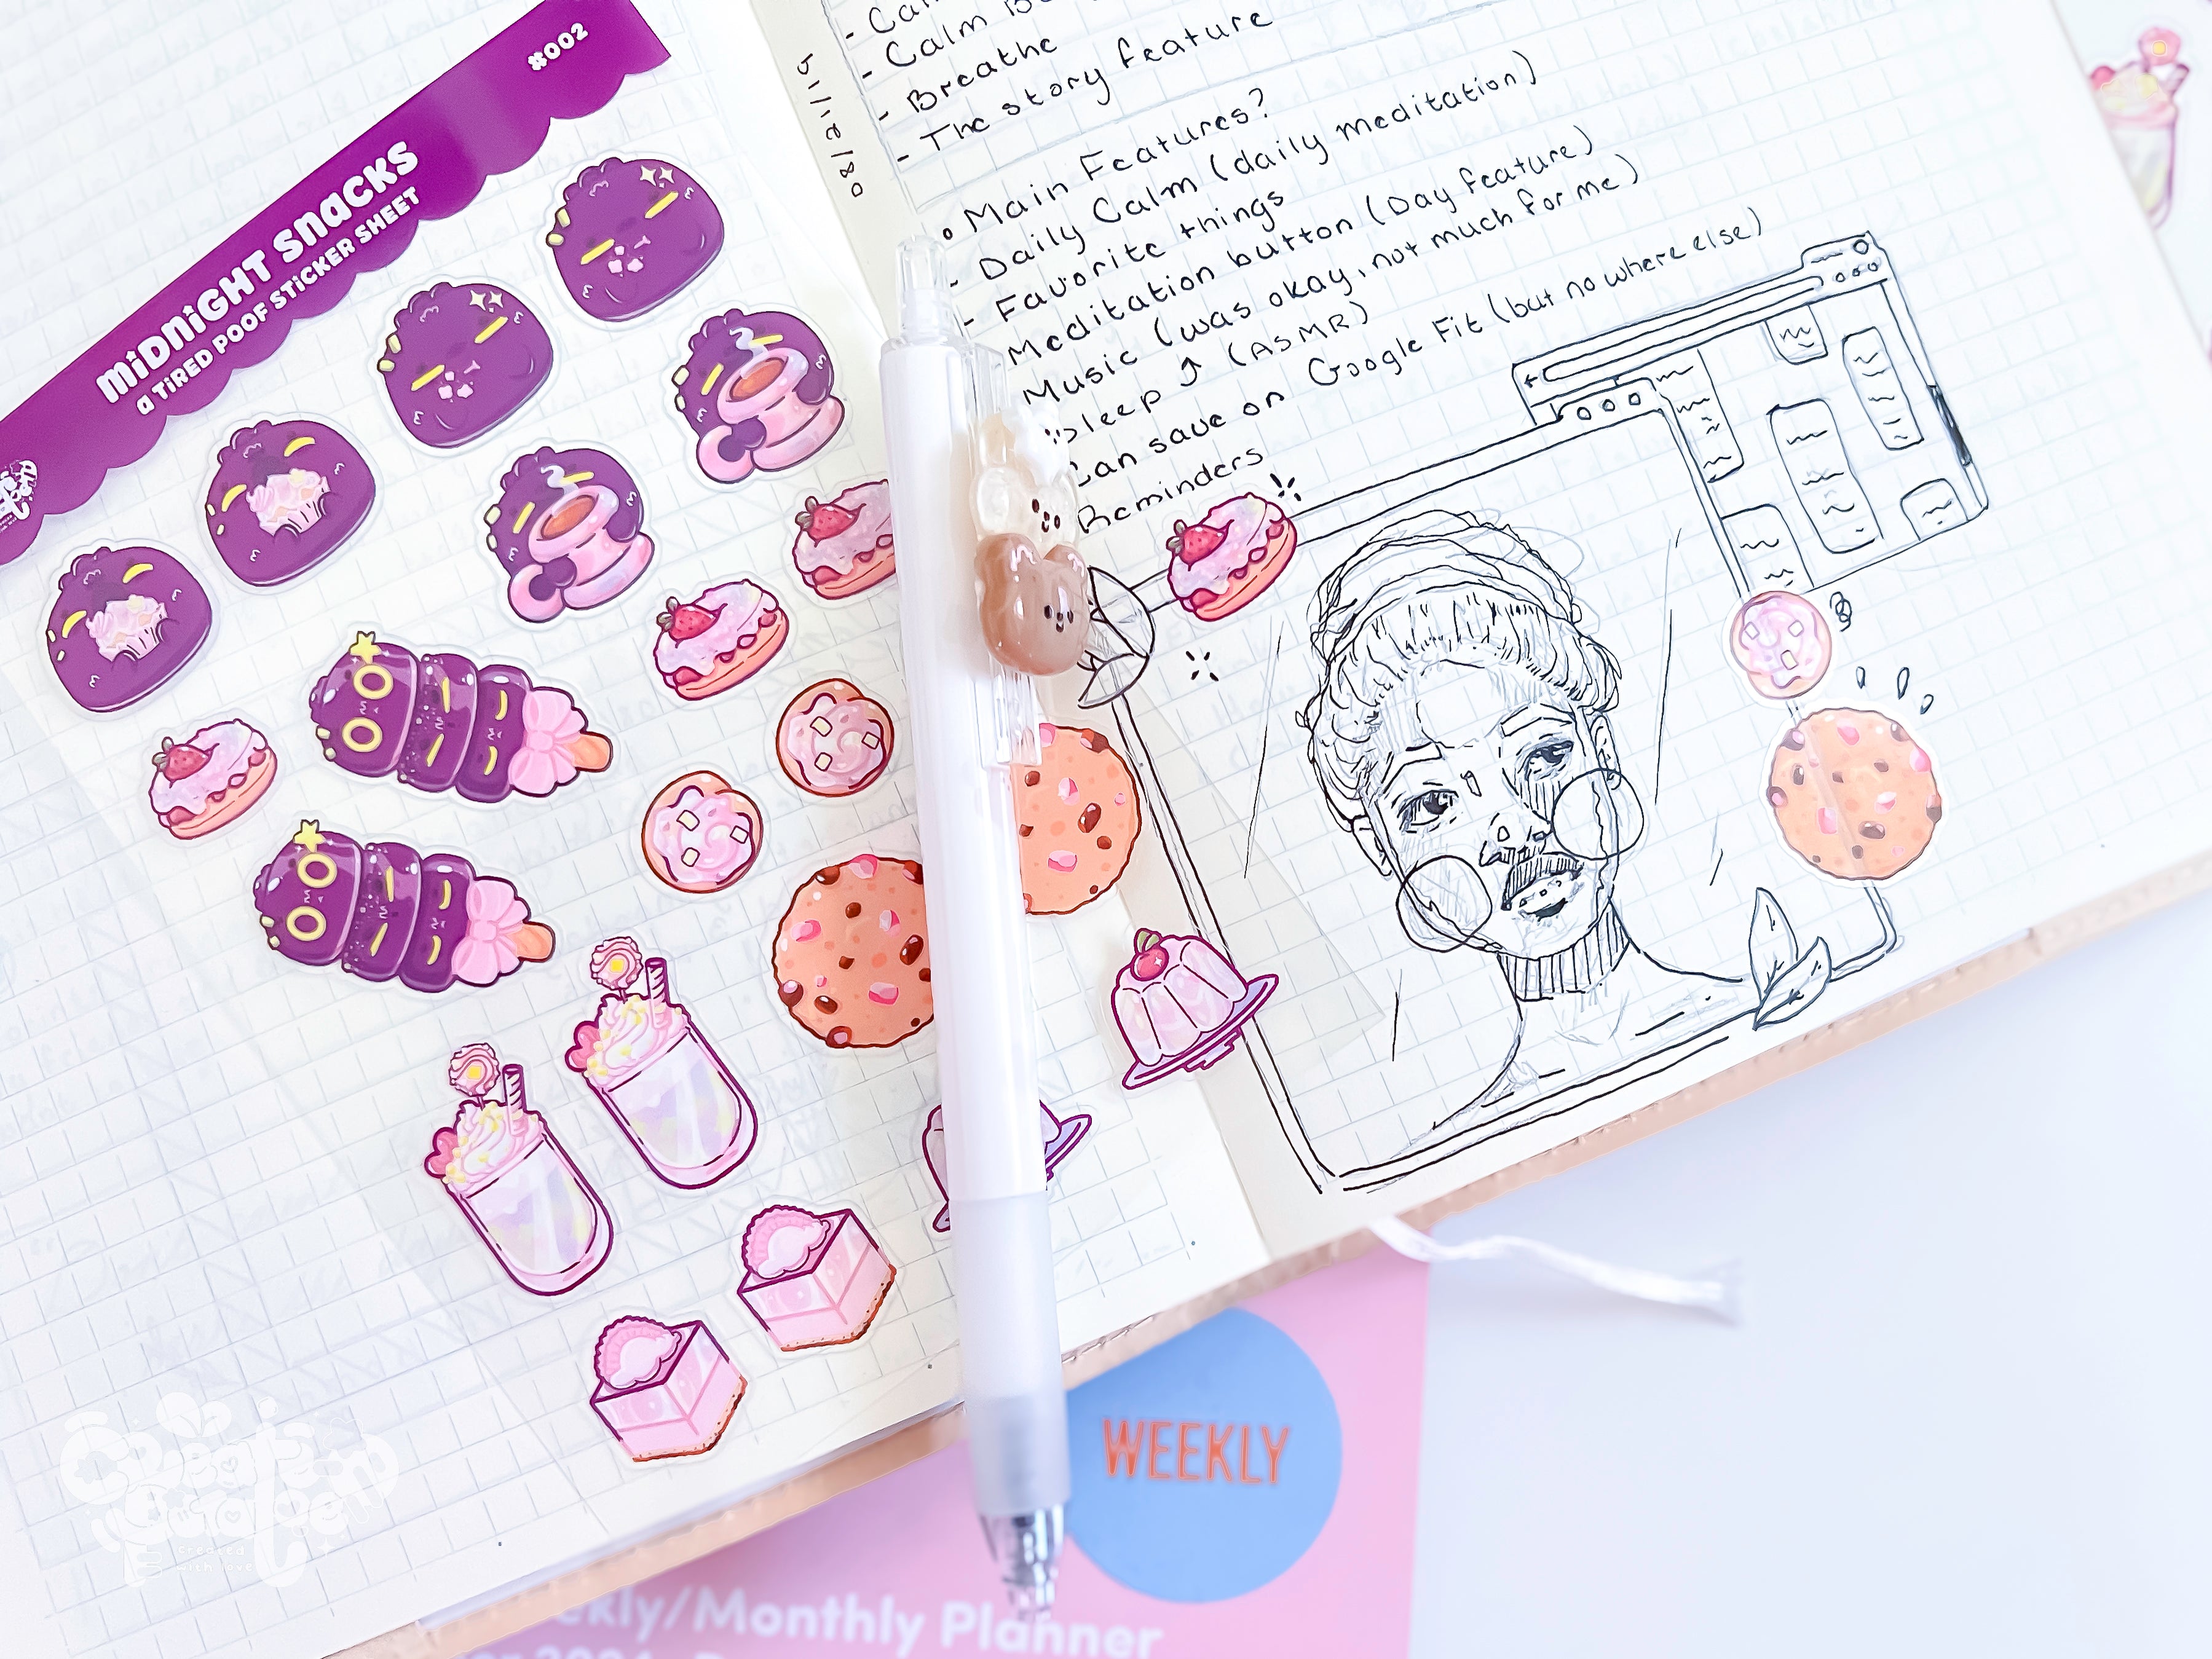 #002
MiDNiGHT SNaCKS
a TiRED POOF STiCKER SHEET
- Calm
- Breathe
- The story feature
• Main Features?
- Daily Calm (daily meditation)
- Favorite things
Meditation button (Day feature)
Music (was okay, not much for me)
Sleep ↑ (ASMR)
Can save on Google Fit (but no where else)
Reminders
WEEKLY
Weekly/Monthly Planner
created
with love